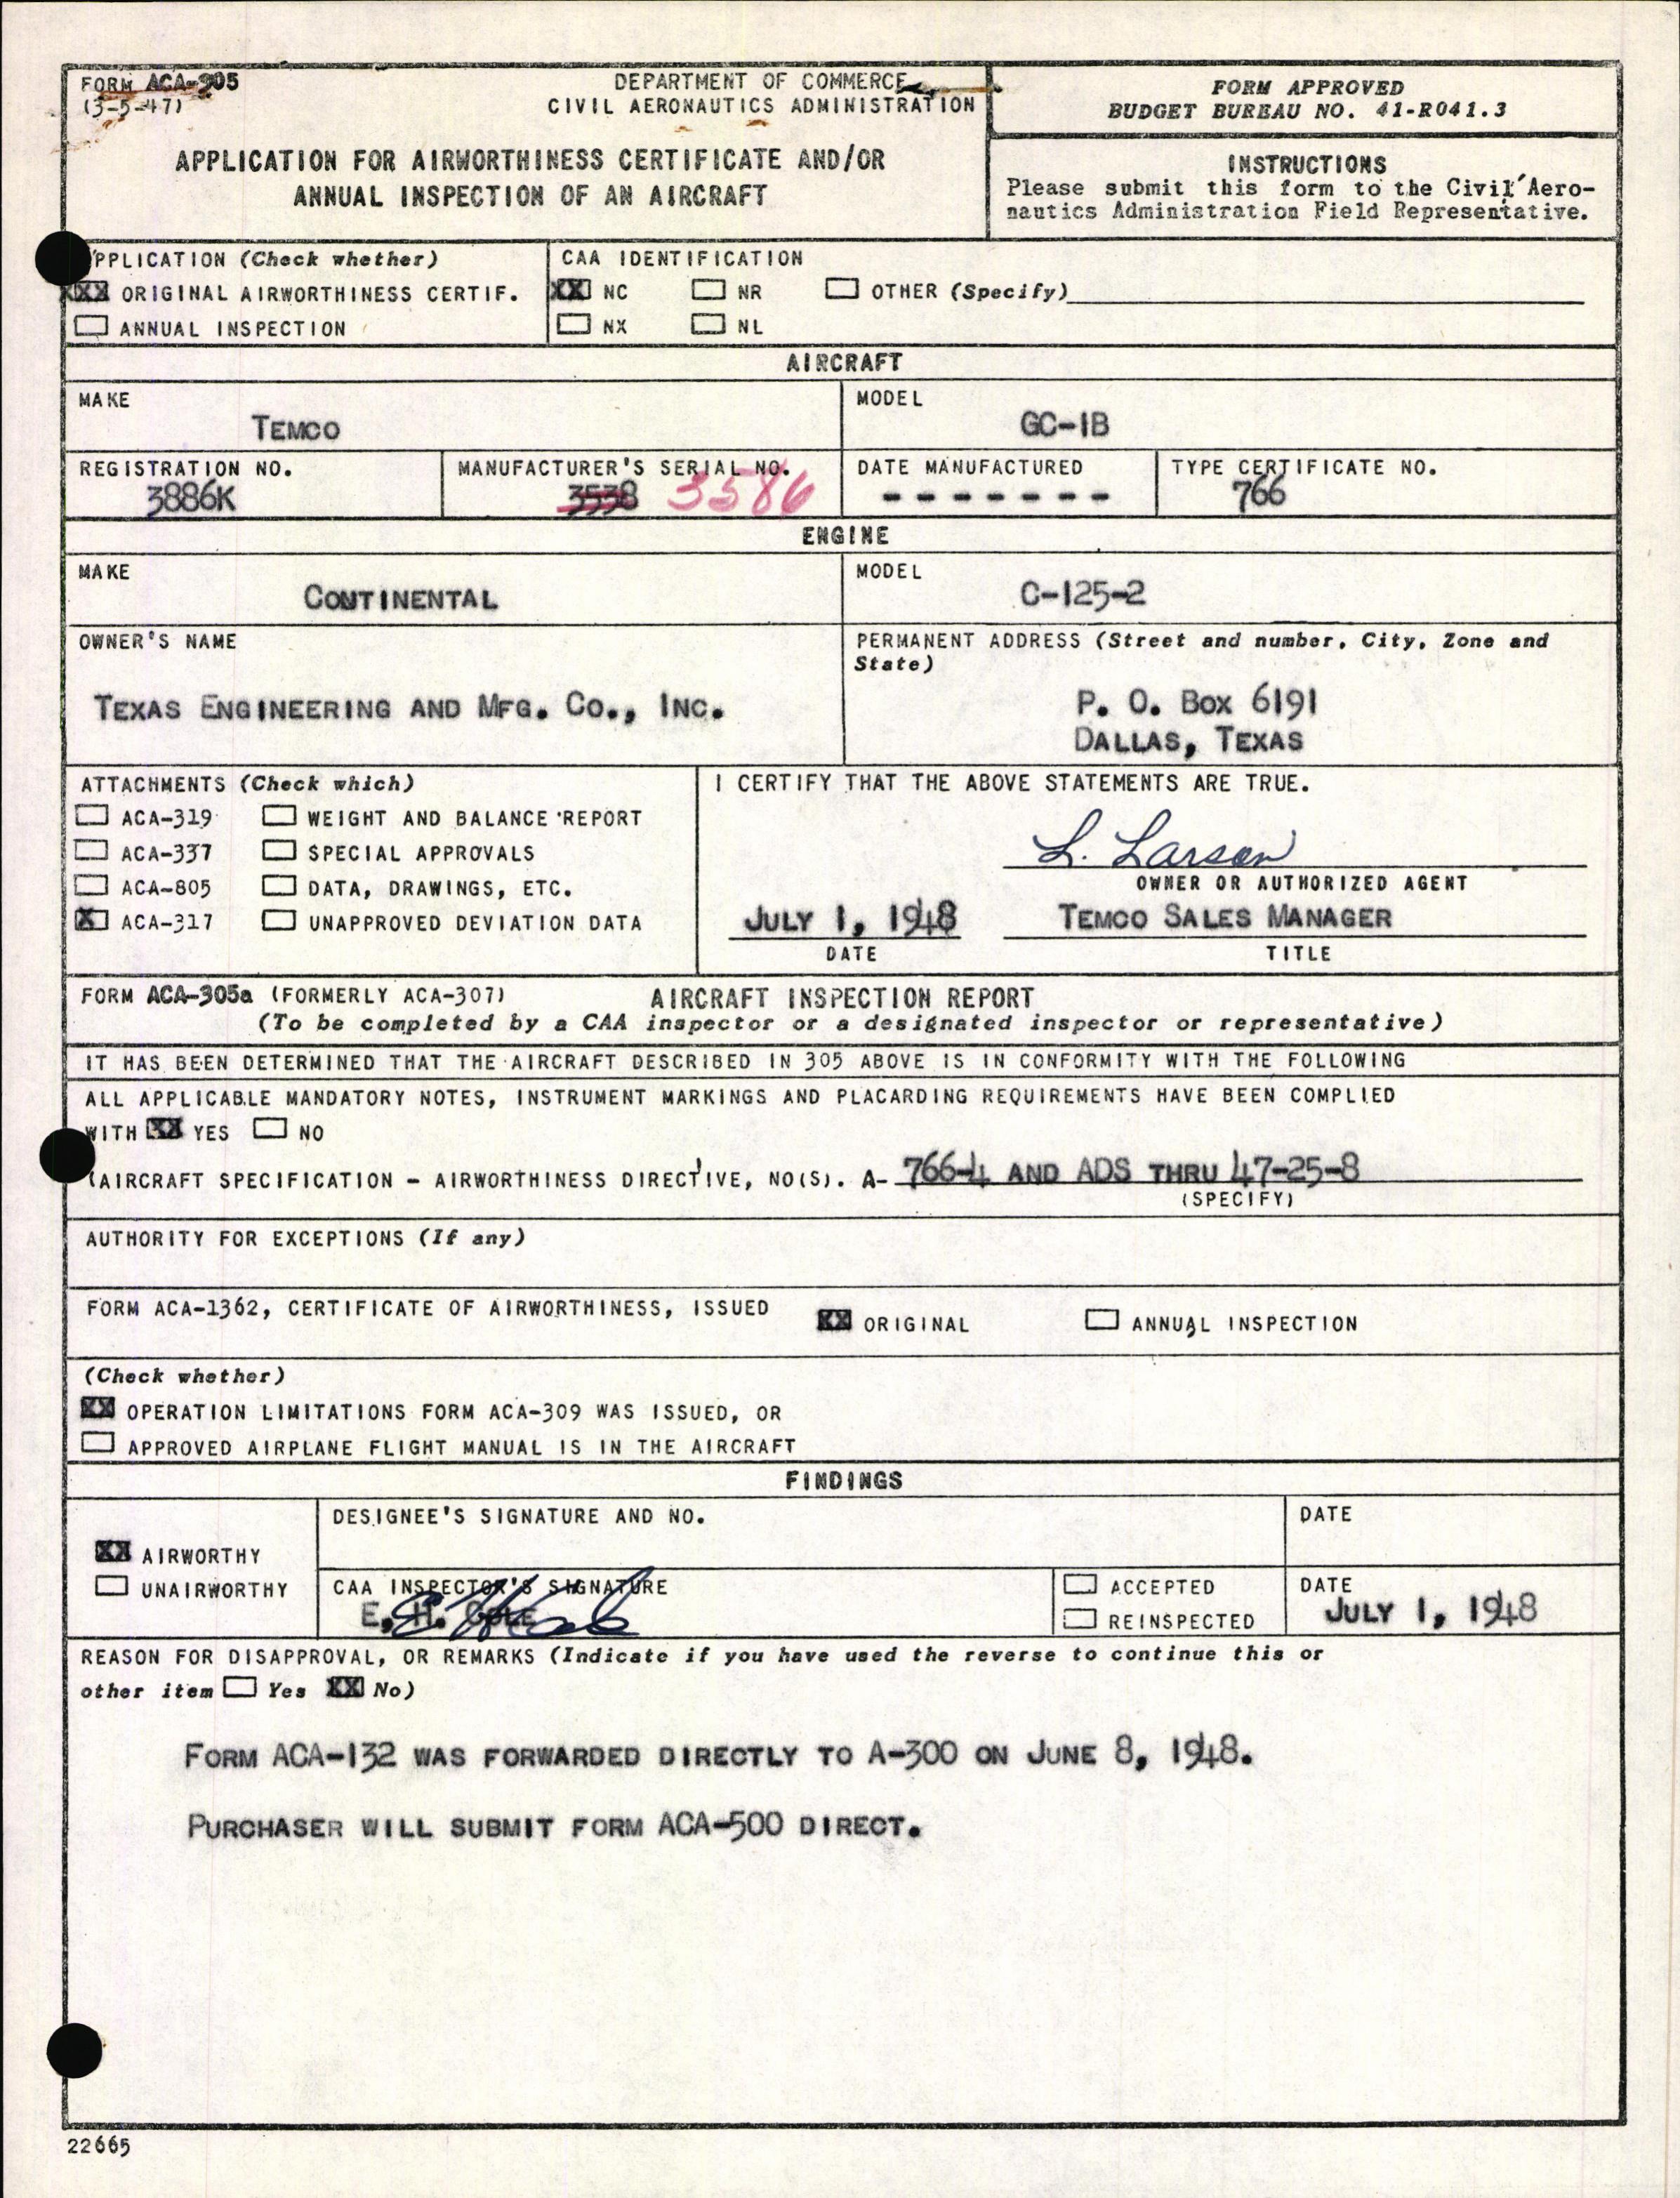 FORM ACA-305
(3-5-47)
DEPARTMENT OF COMMERCE
CIVIL AERONAUTICS ADMINISTRATION
APPLICATION FOR AIRWORTHINESS CERTIFICATE AND/OR
ANNUAL INSPECTION OF AN AIRCRAFT
FORM APPROVED
BUDGET BUREAU NO. 41-R041.3
INSTRUCTIONS
Please submit this form to the Civil Aero-
nautics Administration Field Representative.
APPLICATION (Check whether)
XXX ORIGINAL AIRWORTHINESS CERTIF.
ANNUAL INSPECTION
CAA IDENTIFICATION
XX NC NR OTHER (Specify)
NX NL
AIRCRAFT
MAKE
TEMCO
MODEL
GC-1B
REGISTRATION NO.
3886K
MANUFACTURER'S SERIAL NO.
3538 3586
DATE MANUFACTURED
- - - - - - -
TYPE CERTIFICATE NO.
766
ENGINE
MAKE
CONTINENTAL
MODEL
C-125-2
OWNER'S NAME
TEXAS ENGINEERING AND MFG. CO., INC.
PERMANENT ADDRESS (Street and number, City, Zone and
State)
P. O. BOX 6191
DALLAS, TEXAS
ATTACHMENTS (Check which)
ACA-319 WEIGHT AND BALANCE REPORT
ACA-337 SPECIAL APPROVALS
ACA-805 DATA, DRAWINGS, ETC.
X ACA-317 UNAPPROVED DEVIATION DATA
I CERTIFY THAT THE ABOVE STATEMENTS ARE TRUE.
L. Larson
OWNER OR AUTHORIZED AGENT
JULY 1, 1948 TEMCO SALES MANAGER
DATE TITLE
FORM ACA-305a (FORMERLY ACA-307) AIRCRAFT INSPECTION REPORT
(To be completed by a CAA inspector or a designated inspector or representative)
IT HAS BEEN DETERMINED THAT THE AIRCRAFT DESCRIBED IN 305 ABOVE IS IN CONFORMITY WITH THE FOLLOWING
ALL APPLICABLE MANDATORY NOTES, INSTRUMENT MARKINGS AND PLACARDING REQUIREMENTS HAVE BEEN COMPLIED
WITH XX YES NO
(AIRCRAFT SPECIFICATION - AIRWORTHINESS DIRECTIVE, NO(S). A- 766-4 AND ADS THRU 47-25-8
(SPECIFY)
AUTHORITY FOR EXCEPTIONS (If any)
FORM ACA-1362, CERTIFICATE OF AIRWORTHINESS, ISSUED XX ORIGINAL ANNUAL INSPECTION
(Check whether)
XX OPERATION LIMITATIONS FORM ACA-309 WAS ISSUED, OR
APPROVED AIRPLANE FLIGHT MANUAL IS IN THE AIRCRAFT
FINDINGS
XX AIRWORTHY
UNAIRWORTHY
DESIGNEE'S SIGNATURE AND NO.
DATE
CAA INSPECTOR'S SIGNATURE
E. H. COLE
ACCEPTED
REINSPECTED
DATE
JULY 1, 1948
REASON FOR DISAPPROVAL, OR REMARKS (Indicate if you have used the reverse to continue this or
other item Yes XX No)
FORM ACA-132 WAS FORWARDED DIRECTLY TO A-300 ON JUNE 8, 1948.
PURCHASER WILL SUBMIT FORM ACA-500 DIRECT.
22665